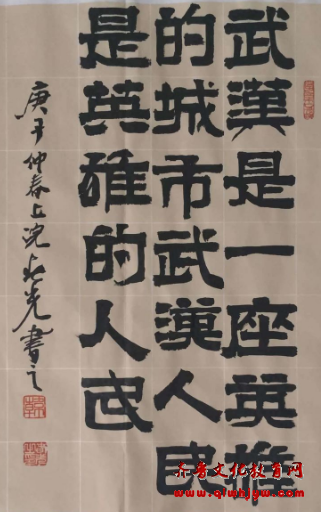 武漢是一座英雄
的城市武漢人民
是英雄的人民
庚子仲春上浣光書之
齐鲁文化教育网